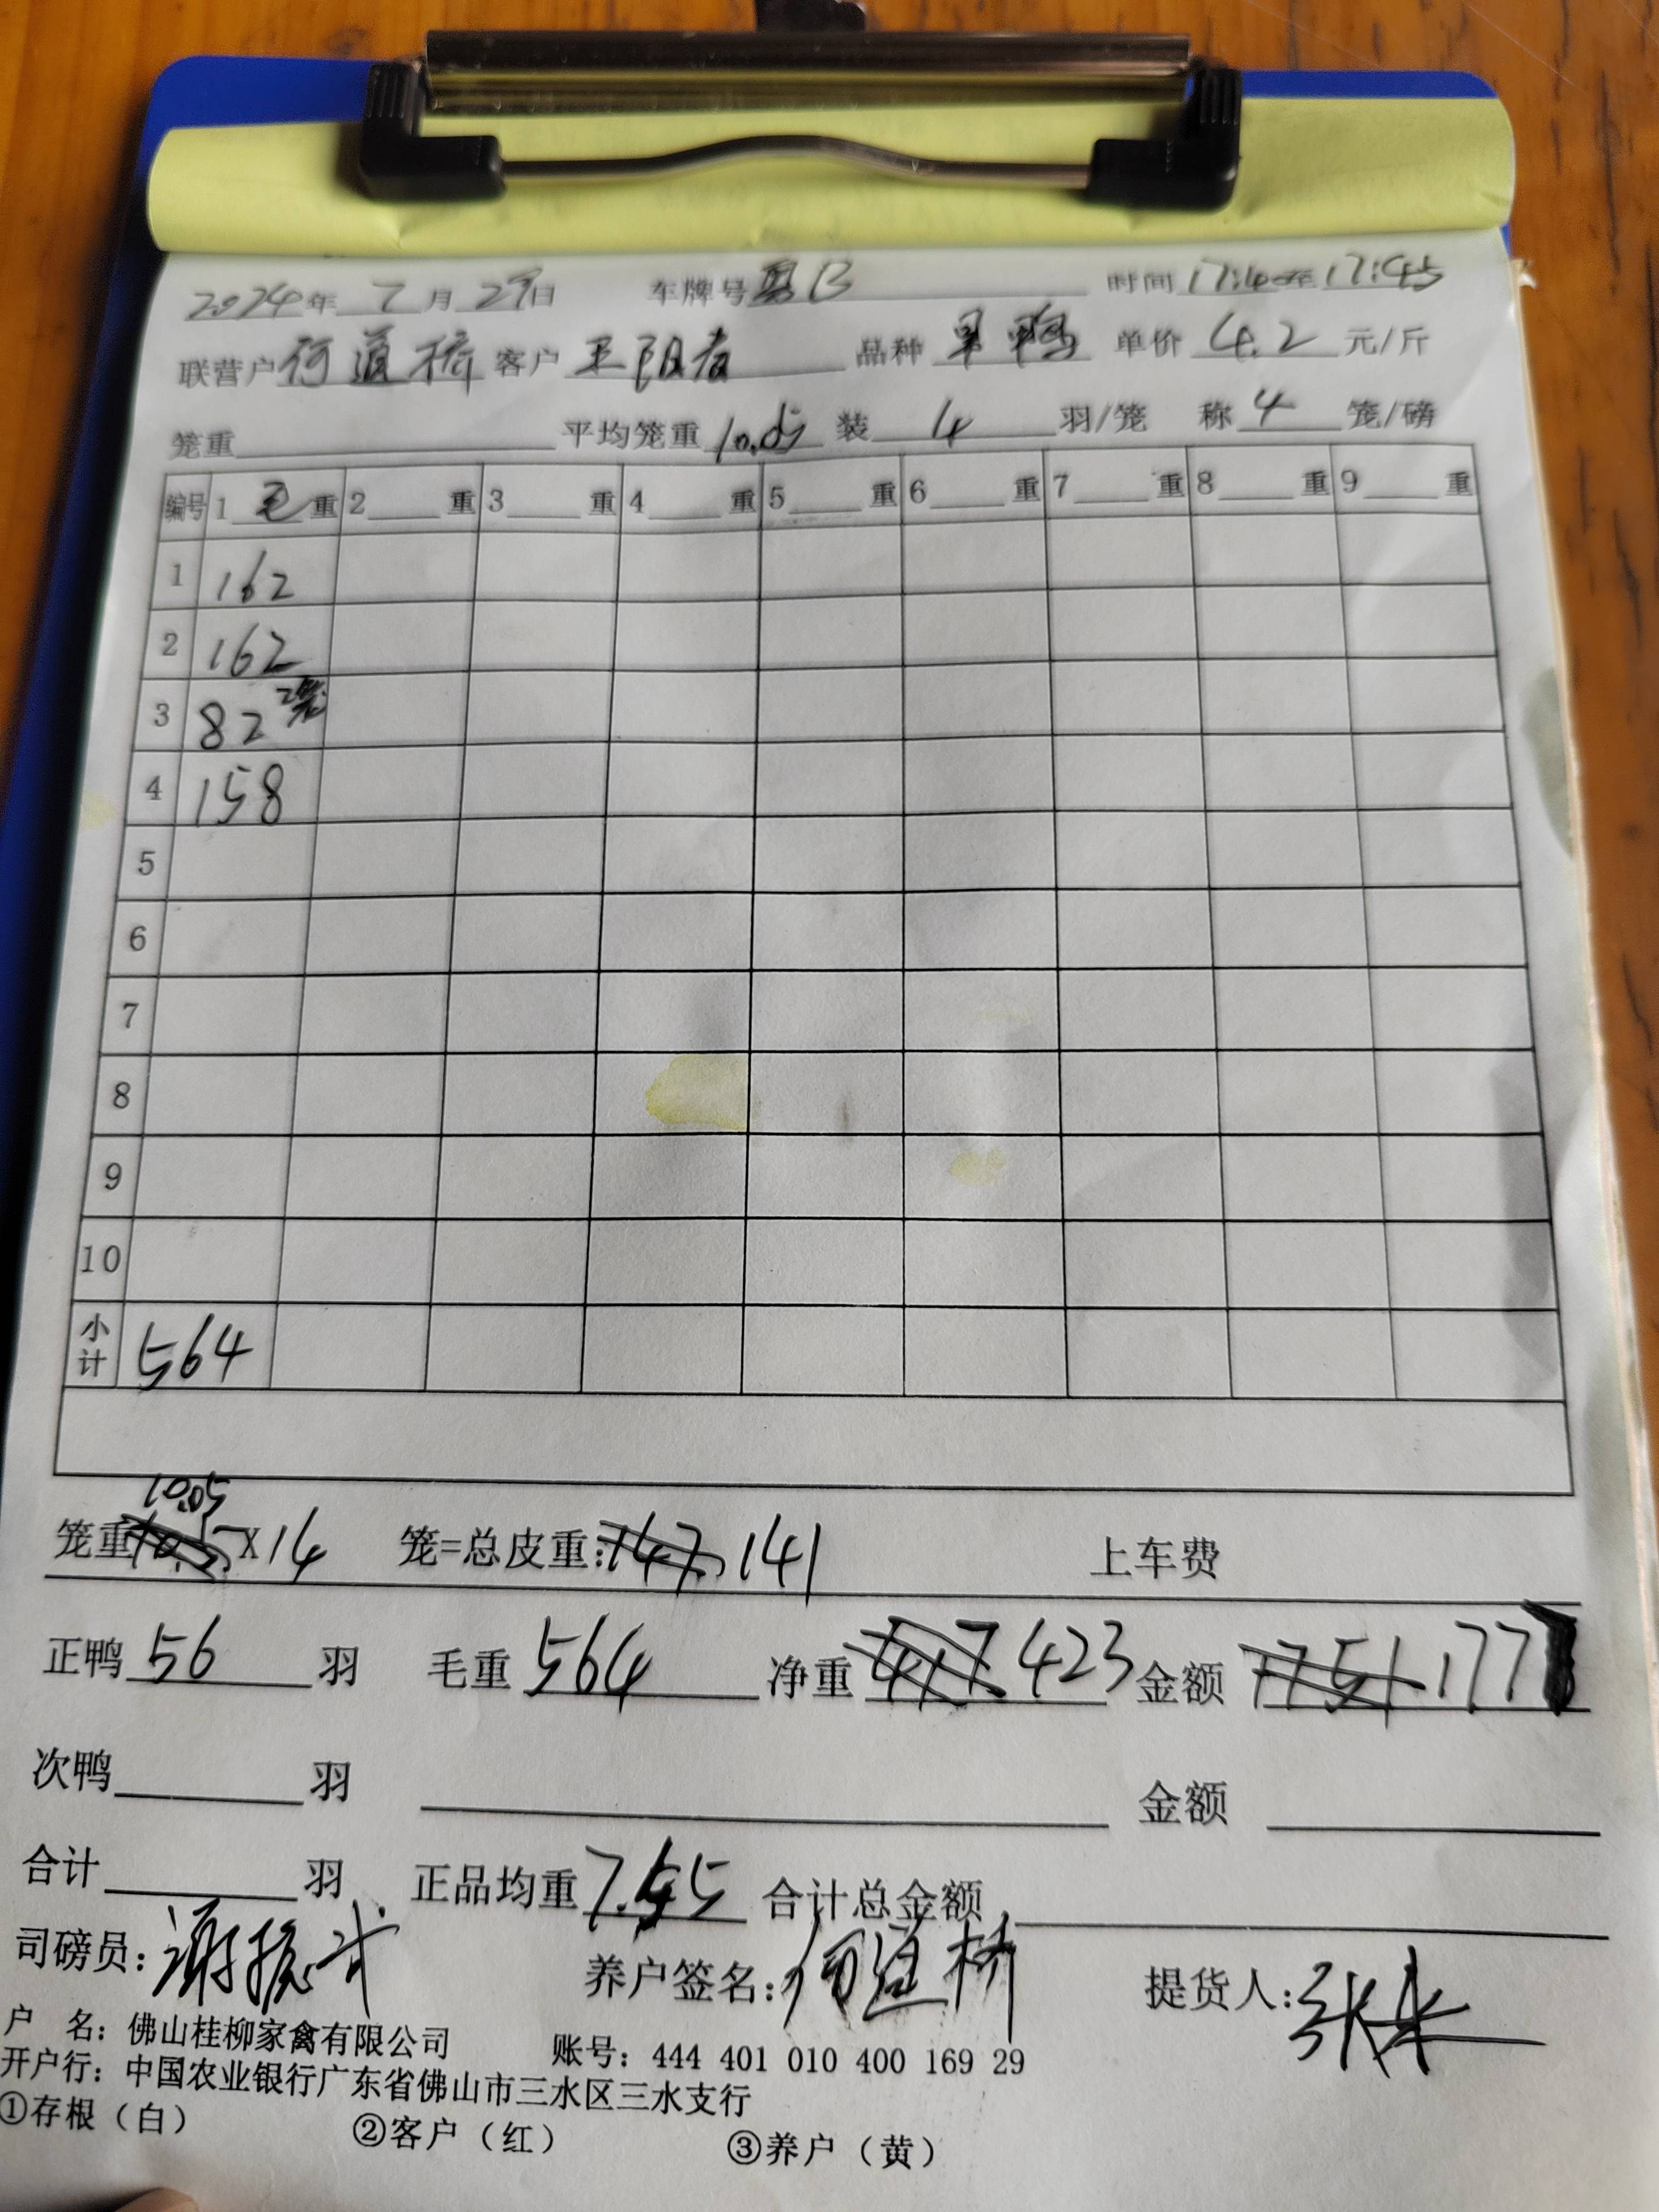 2024年 7月 29日 车牌号 粤B 时间 17:40至17:45
联营户 何道桥 客户 王阳春 品种 旱鸭 单价 4.2 元/斤
笼重 平均笼重 10.05 装 4 羽/笼 称 4 笼/磅
编号 1 毛 重 2 重 3 重 4 重 5 重 6 重 7 重 8 重 9 重
1 162
2 162
3 82 2笼
4 158
5
6
7
8
9
10
小计 564
笼重 10.05 X14 笼=总皮重: 141 上车费
正鸭 56 羽 毛重 564 净重 423 金额 177
次鸭 羽 金额
合计 羽 正品均重 7.55 合计总金额
司磅员: 谢 养户签名: 何道桥 提货人: 张
户 名: 佛山桂柳家禽有限公司 账号: 444 401 010 400 169 29
开户行: 中国农业银行广东省佛山市三水区三水支行
①存根（白） ②客户（红） ③养户（黄）